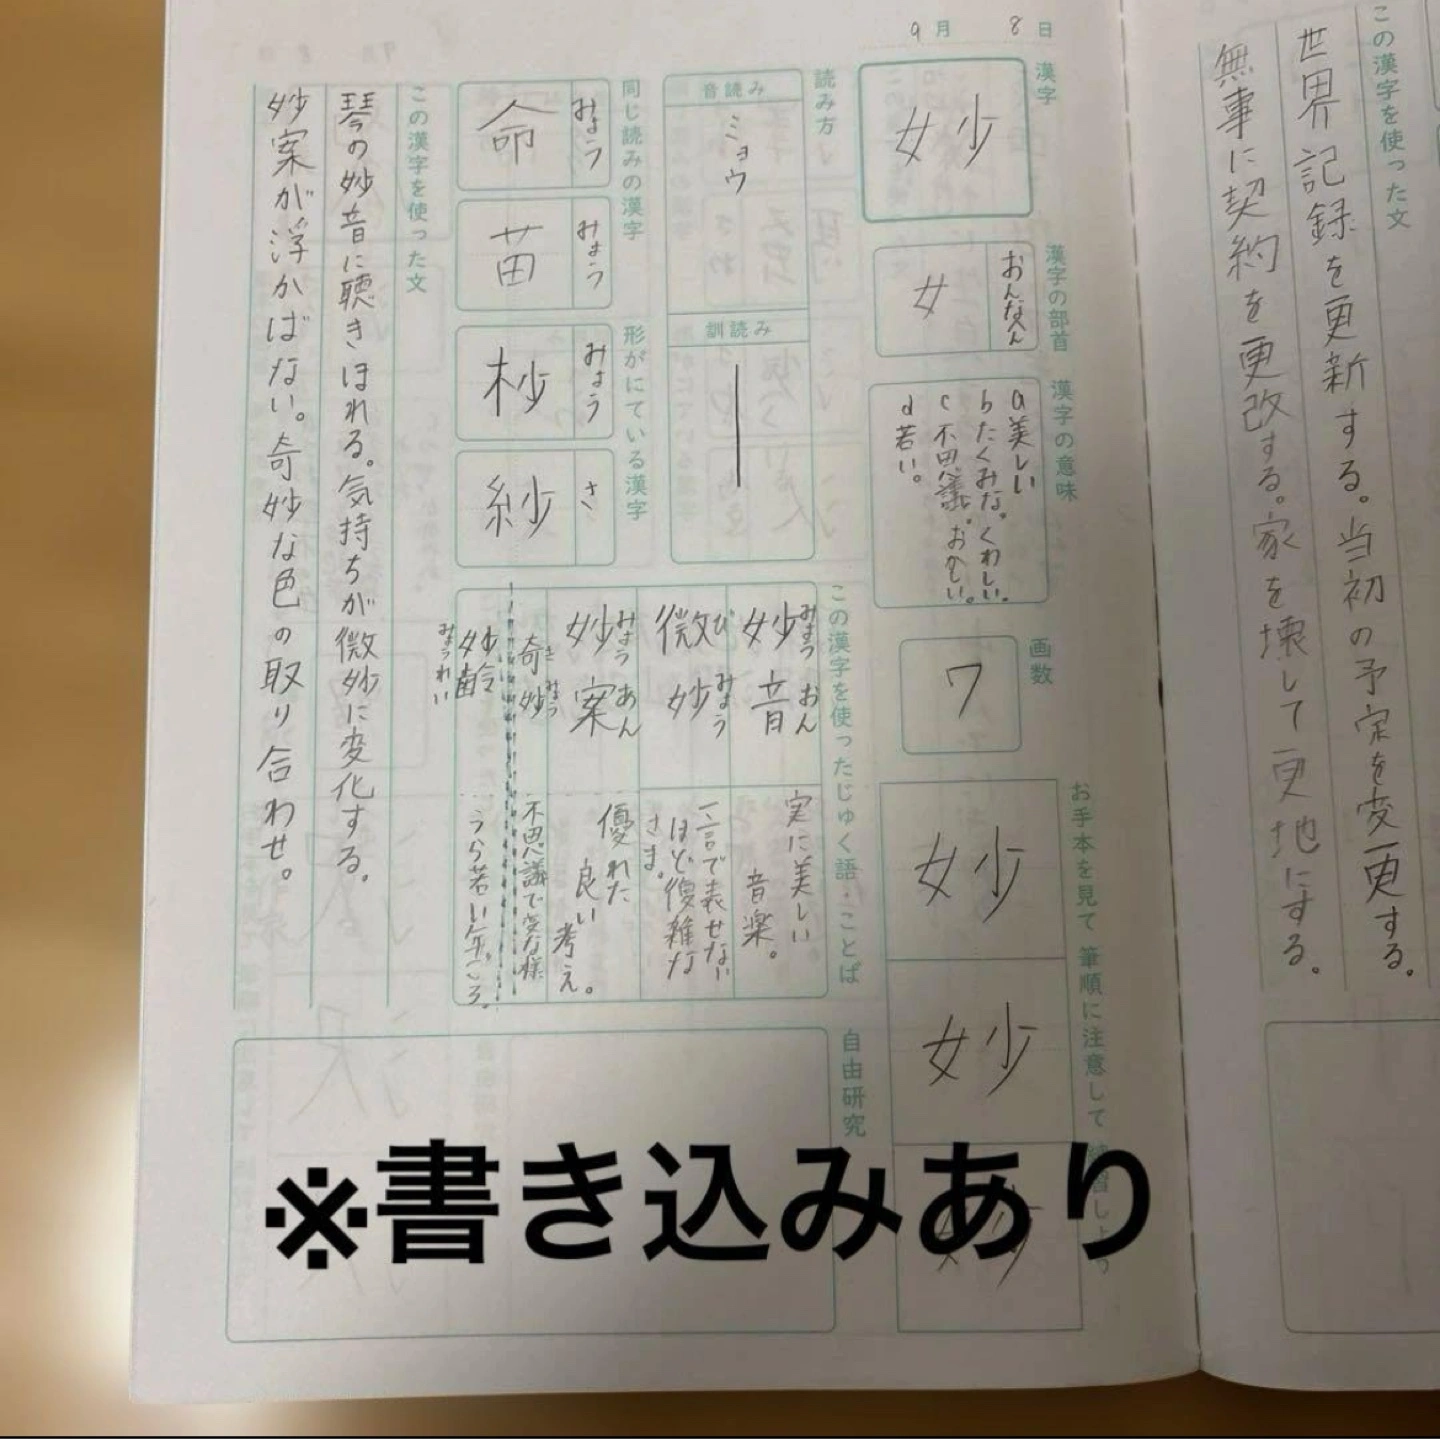 この漢字を使った文
世界記録を更新する。当初の予定を変更する。
無事に契約を更改する。家を壊して更地にする。
9月 8日
漢字
妙
漢字の部首
おんなへん
女
漢字の意味
a美しい
bたくみな。くわしい。
c不思議。おかしい。
d若い。
画数
7
お手本を見て 筆順に注意して
妙
妙
読み方
音読み
ミョウ
訓読み
同じ読みの漢字
みょう
命
みょう
苗
形がにている漢字
みょう
杪
さ
紗
この漢字を使ったじゅく語・ことば
みょうおん
妙音
実に美しい
音楽。
びみょう
微妙
一言で表せない
ほど複雑な
さま。
みょうあん
妙案
優れた
良い
考え。
きみょう
奇妙
不思議で変な様
妙齢
みょうれい
うら若い年ごろ。
この漢字を使った文
琴の妙音に聴きほれる。気持ちが微妙に変化する。
妙案が浮かばない。奇妙な色の取り合わせ。
自由研究
※書き込みあり